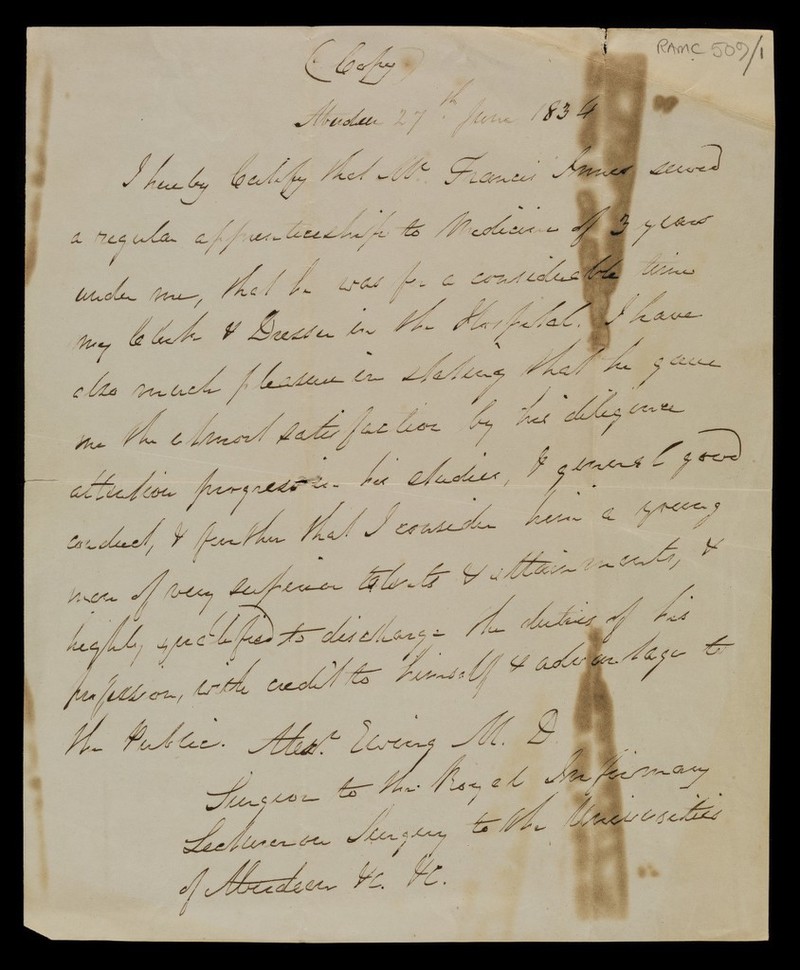 RAMC 509/1
(Copy)
Aberdeen 27th June 1834
I hereby Certify that Mr. Francis Innes served
a regular apprenticeship to Medicine of 3 years
under me, that he was for a considerable time
my Clerk & Dresser in the Hospital. I have
also much pleasure in stating that he gave
me the utmost satisfaction by his diligence
attention progress in his studies, & general good
conduct, & further that I consider him a young
man of very superior talents & attainments, &
highly qualified to discharge the duties of his
profession, with credit to himself & advantage to
the Public. Alexr. Ewing M. D
Surgeon to the Royal Infirmary
Lecturer on Surgery to the Universities
of Aberdeen &c. &c.